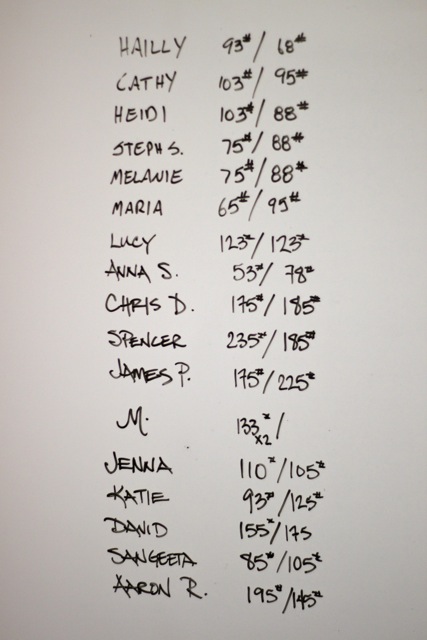 HAILLY 93#/ 68#
CATHY 103#/ 95#
HEIDI 103#/ 88#
STEPH S. 75#/ 88#
MELANIE 75#/ 88#
MARIA 65#/ 95#
LUCY 123#/ 123#
ANNA S. 53#/ 78#
CHRIS D. 175#/ 185#
SPENCER 235#/ 185#
JAMES P. 175#/ 225#
M. 133# x2 /
JENNA 110#/105#
KATIE 93#/125#
DAVID 155#/175
SANGEETA 85#/105#
AARON R. 195#/145#